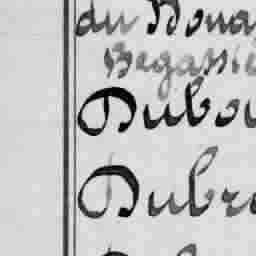 du Boua
Begassie
Dubou
Dubre